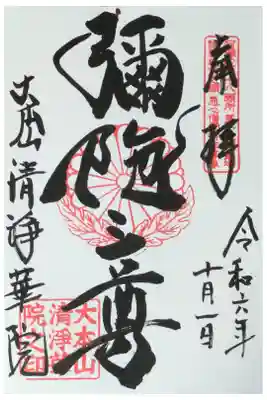 奉拝
令和六年
十月一日
彌陀三尊
大本山 清浄華院
大本山
清浄華
院之印